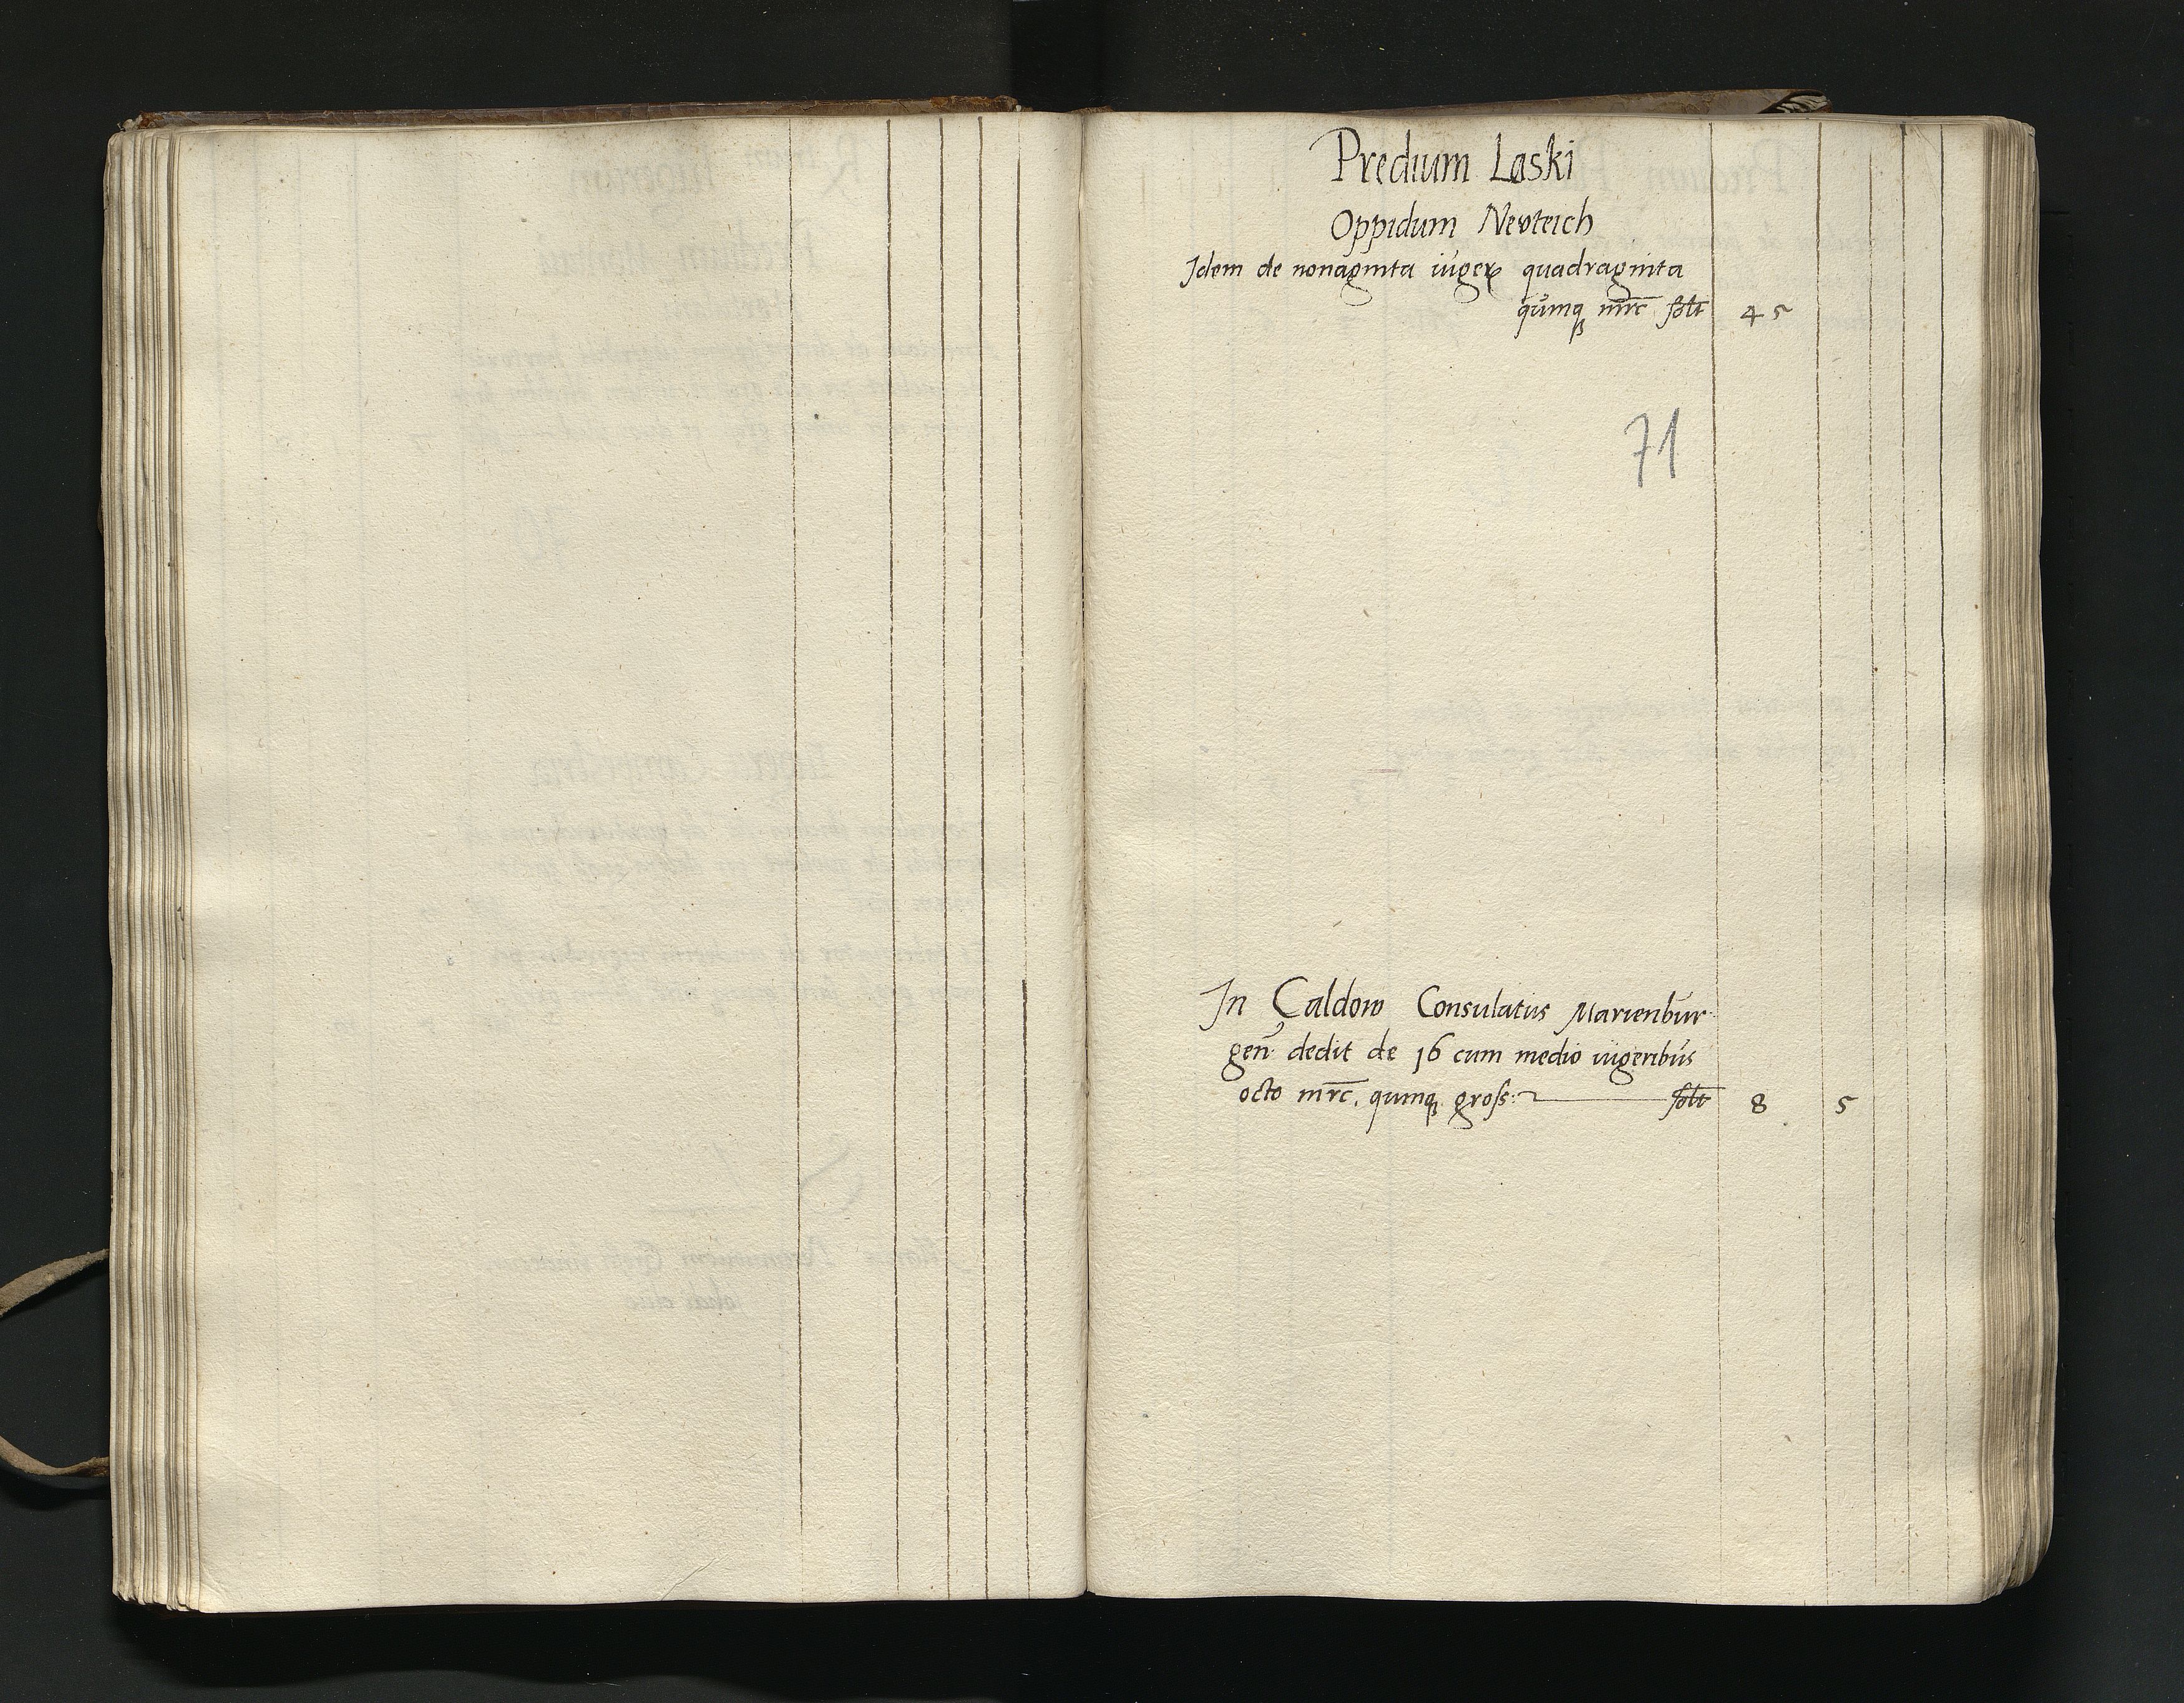 Predium Laski
Oppidum Nevteich
Idem de nonaginta iuger quadraginta
quinq mrc solt 45
71
In Caldow Consulatus Marienbur
gen: dedit de 16 cum medio iugeribus
octo mrc. quinq gross: solt 8 5